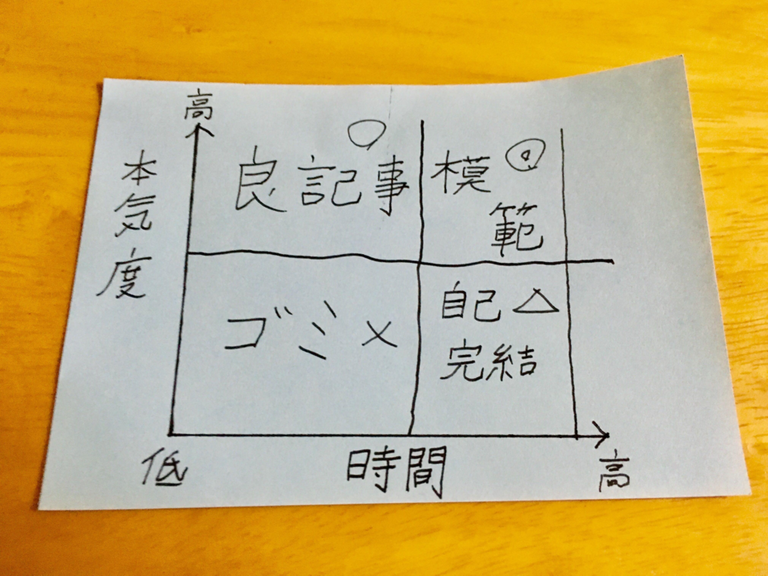 高
本気度
良記事 ○
模範 ◎
ゴミ ×
自己 △
完結
低
時間
高